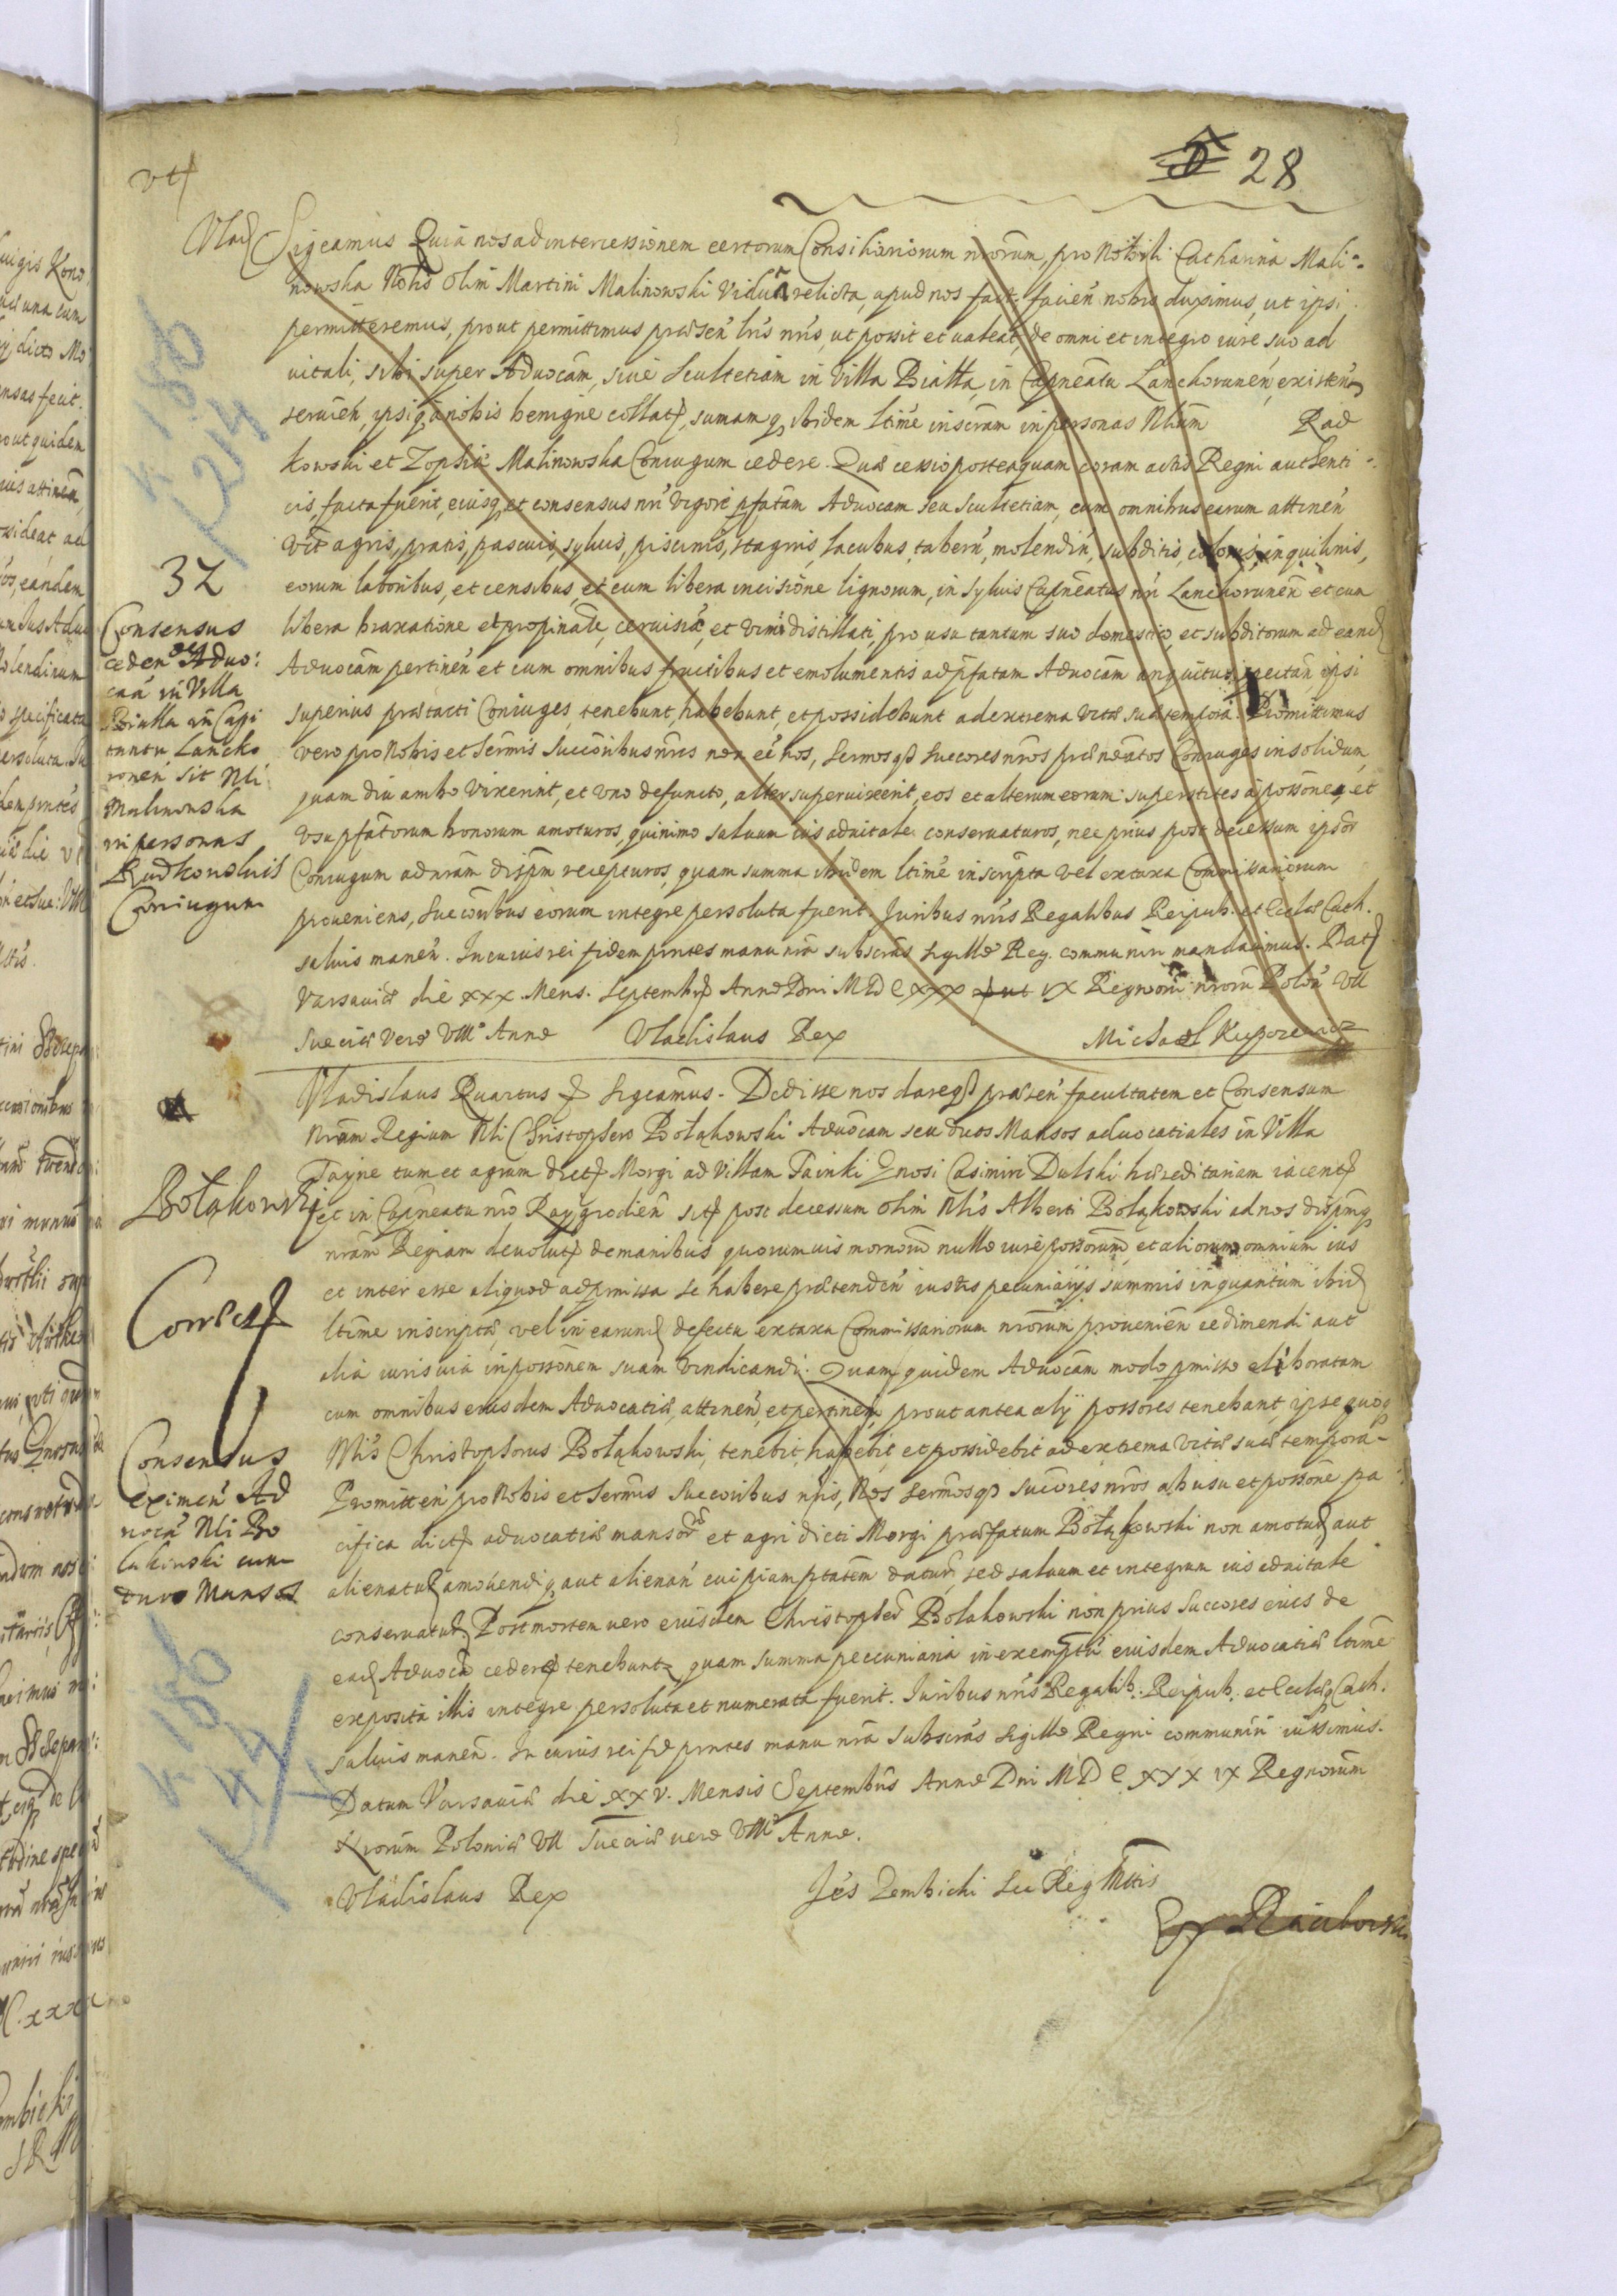 28
Vlad Sigcamus Quia nos ad intercessionem certorum Consiliariorum nrorum, pro Nobili Catharina Mali=
nowska Nobis olim Martini Malinowski Vidua relicta, apud nos fact. fauen nobis duximus, ut ipsi
permitteremus, prout permittimus præsen lris nris, ut possit et valeat, de omni et integro iure suo ad
vitali, sibi super Aduocam, siue Scultetiam in Villa Bialla, in Capneatu Lanckorunen existen
seruien, ipsiq, a nobis benigne collat, sumamq, ibidem ltime inscram in personas Nlium Rad
kowski et Zophiæ Malinowska Coniugum cedere. Quæ cessio posteaquam coram actis Regni authenti=
cis, facta fuerit, eiusq, et consensus nri vigore pfatam Aduocam seu Scultetiam, cum omnibus earum attinen
Vit agris, pratis, pascuis, syluis, piscinis, stagnis, lacubus, tabern, molendin, subditis, colonis, inquilinis,
eorum laboribus, et censibus, et cum libera incisione lignorum, in syluis Capneatus nri Lanckorunen et cum
libera braxatione et propinate, ceruisiæ, et vini distillati, pro usu tantum suo domestico, et subditorum ad eand
Aduocam pertinen et cum omnibus fructibus et emolumentis ad pfatam Aduocam antiquitus spectan, ipsi
superius prætacti Coniuges, tenebunt, habebunt, et possidebunt ad extrema vitæ suæ tempora. Promittimus
vero pro Nobis et Sermis Succoribus nris non eē nos, Sermosqz Succores nros prænoatos Coniuges insolidum,
quam diu ambo vixerint, et vno defuncto, alter superuixerit, eos et alterum eorum superstites a possōne, et
Vsu pfatorum bonorum amoturos, quinimo saluum ius aduitale conseruaturos, nec prius post decessum ipsor
Coniugum ad nram dispm recepturos, quam summa ibidem ltime inscripta vel ex taxa Commissariorum
proueniens, Succoribus eorum integre persoluta fuerit. Juribus nris Regalibus Reipub. et Eccles Cath.
saluis manen. In cuius rei fidem pntes manu nra subscras sigillo Reg. communiri mandauimus. Dat
Varsauiæ die xxx Mens. Septembr Anno Dni MDCxxx ix Regnorum nrorum Polon VII
Sueciæ vero VIII Anno Vladislaus Rex Michael Kuporewicz
32
Consensus
ceden Aduo:
cam in Villa
Bialla in Capi
tantu Lancko
ronen sit Nli
Malinowska
in personas
Radkowskis
Coniugum
Vladislaus Quartus Sigcamus. Dedisse nos dareqz præsen facultatem et Consensum
Nrum Regium Nli Christophero Bołąkowski Aduocam seu duos Mansos aduocatiales in Villa
Tayne tum et agrum dict Morgi ad Villam Tainki Gnosi Casimiri Dulski hæreditariam iacent
et in Capneatu nro Raygrodien sit post decessum olim Nlis Alberti Bołąkowski ad nos dispmqz
nram Regiam deuolut de manibus quorumuis mornorum nullo iure possorum, et aliorum omnium ius
et interesse aliquod ad pmissa se habere prætenden iustis pecuniarijs summis in quantum ibid
ltime inscriptæ, vel in earund defectu ex taxa Commissariorum nrorum prouenien redimendi aut
alia iuris via in possonem suam vindicandi. Quam quidem Aduocam modo pmisso eliboratam
cum omnibus eiusdem Aduocatiæ, attinen, et pertinen, prout antea alij possores tenebant, ipse quoqz
Nlis Christophorus Bołąkowski, tenebit, habebit, et possidebit ad extrema vitæ suæ tempora.
Promitten pro Nobis et Sermis Succoribus nris, Nos Sermosqz Succores nros ab usu et possone pa
cifica dict aduocatiæ mansor et agri dicti Morgi præfatum Bołąkowski non amotur aut
alienatur amouendiq, aut alienan cuipiam ptatem datur, sed saluum et integrum ius aduitale
conseruatur. Post mortem vero eiusdem Christopheri Bołakowski non prius Succores eius de
ead Aduoca cedere tenebunt, quam summa peccuniaria in exemptu eiusdem Aduocatiæ ltime
exposita illis integre persoluta et numerata fuerit. Juribus nris Regalib. Reipub. et Ecclesq Cath.
saluis manen. In cuius rei fid pntes manu nra subscras sigillo Regni communiri iussimus.
Datum Varsauiæ die xxv. Mensis Septembris Anno Dni MDCxxx ix Regnorum
Nrorum Poloniæ VII Sueciæ vero VIII Anno.
Vladislaus Rex Jes Zembicki Sec Reg Mttis
Bołąkowski
Consensus
eximen Ad
uocā Nli Bo
lukinski cum
duos Mansos
k 180
k 214
k 180